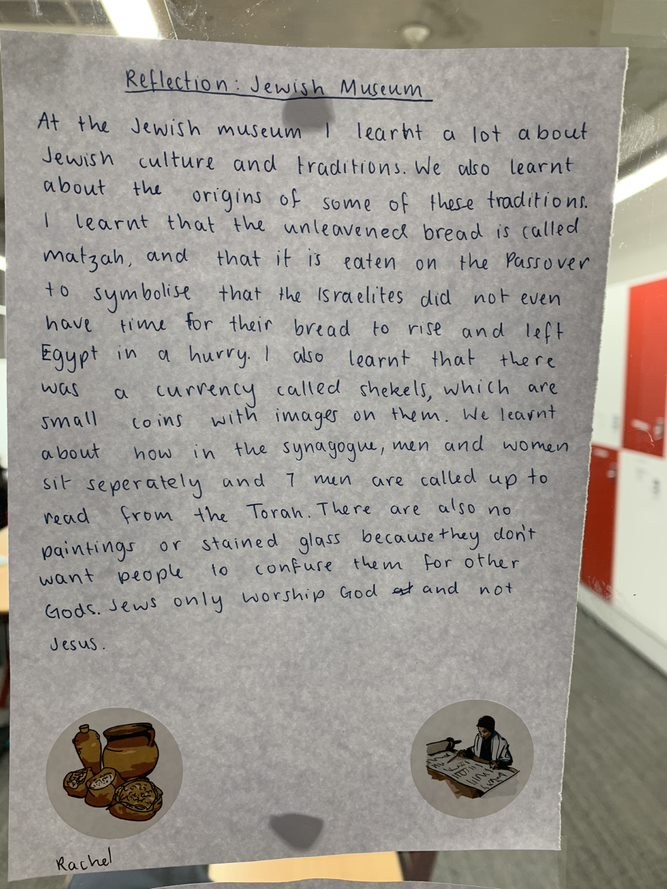 Reflection: Jewish Museum
At the Jewish museum I learnt a lot about
Jewish culture and traditions. We also learnt
about the origins of some of these traditions.
I learnt that the unleavened bread is called
matzah, and that it is eaten on the Passover
to symbolise that the Israelites did not even
have time for their bread to rise and left
Egypt in a hurry. I also learnt that there
was a currency called shekels, which are
small coins with images on them. We learnt
about how in the synagogue, men and women
sit seperately and 7 men are called up to
read from the Torah. There are also no
paintings or stained glass because they don't
want people to confuse them for other
Gods. Jews only worship God and not
Jesus.
Rachel